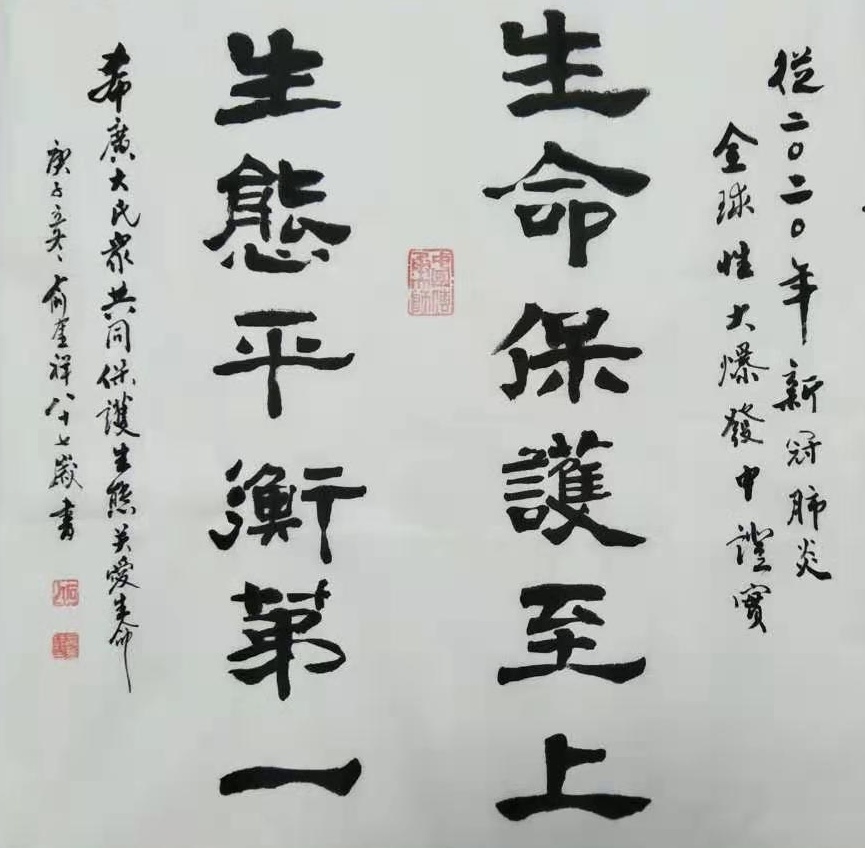 從二〇二〇年新冠肺炎
全球性大爆發中證實
生命保護至上
生態平衡第一
希廣大民衆共同保護生態关愛生命
庚子 俞奎祥八十七歲書